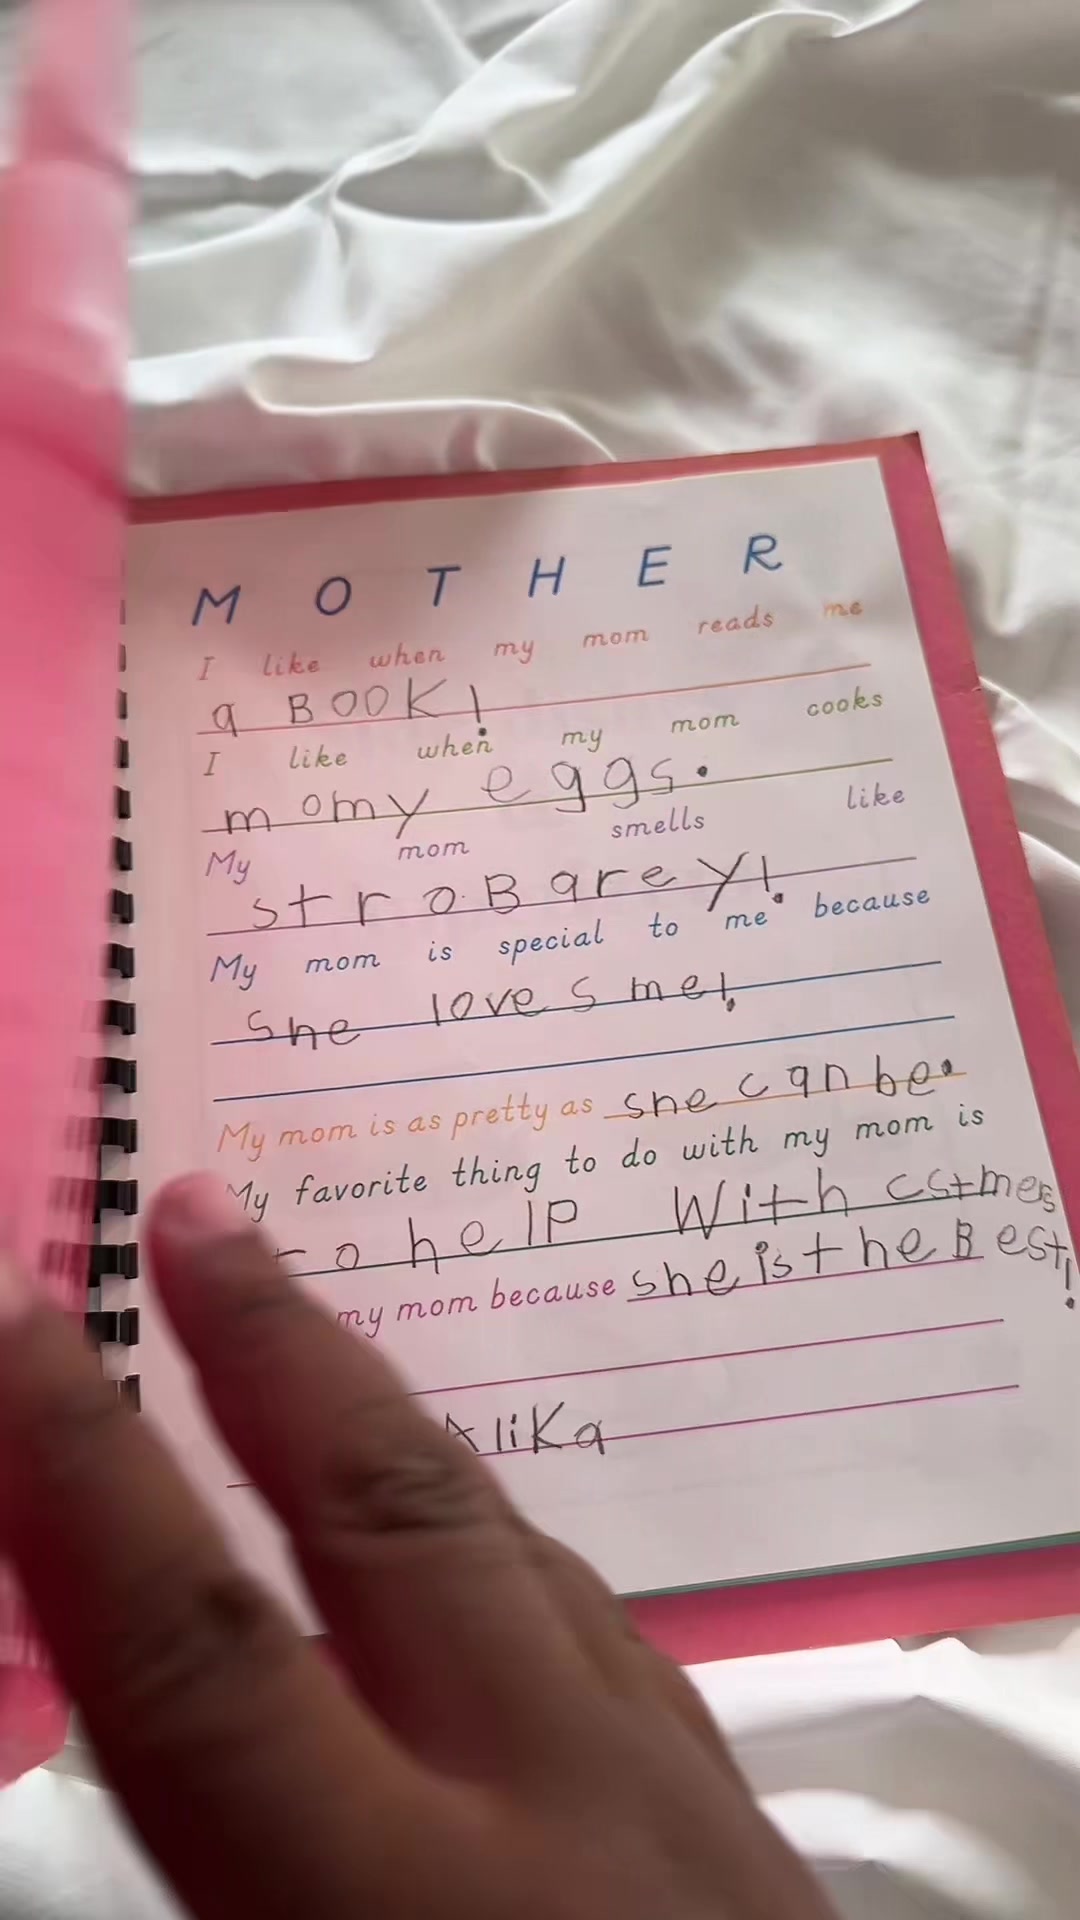 MOTHER
I like when my mom reads me
a BOOK!
I like when my mom cooks
momy eggs.
My mom smells like
stroBarey!
My mom is special to me because
she loves me!
My mom is as pretty as she can be.
My favorite thing to do with my mom is
to help With cstmers
my mom because she is the Best!
Alika